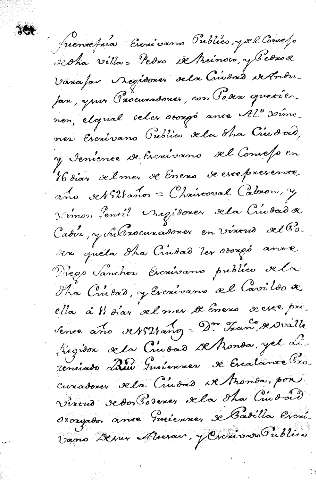 fuentefria Escrivano Publico, y del Consejo
de dha villa = Pedro de Reinoso, y Pedro de
Regidores de la Ciudad de Andu-
jar, y sus Procuradores, con Poder que tie-
nen, el qual se les otorgó ante Al.º
nez Escrivano Publico de la dha Ciudad,
y teniente de Escrivano del Consejo en
16 dias del mes de Enero de este presente
año de 1521 años = Christoval Cabron, y
Simon Regidores de la Ciudad de
Cadiz, y su Procuradores en virtud del Po-
der que la dha Ciudad les otorgó ante
Diego Sanchez Escrivano publico de la
dha Ciudad, y Escrivano del Cavildo de
ella á 11 dias del mes de Enero de este pre-
sente año de 1521 años = Dn. Franc.º de
Regidor de la Ciudad de Ronda, y el Li-
cenciado Gutierrez de Escalante Pro-
curadores de la Ciudad de Ronda, por
virtud de dos Poderes de la dha Ciudad
otorgados ante Gutierrez de Padilla Escri-
vano de sus Altezas, y Escrivano Publico